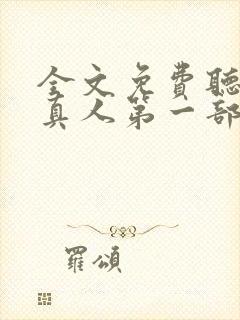 全文免費聽
真人第一部
羅頌